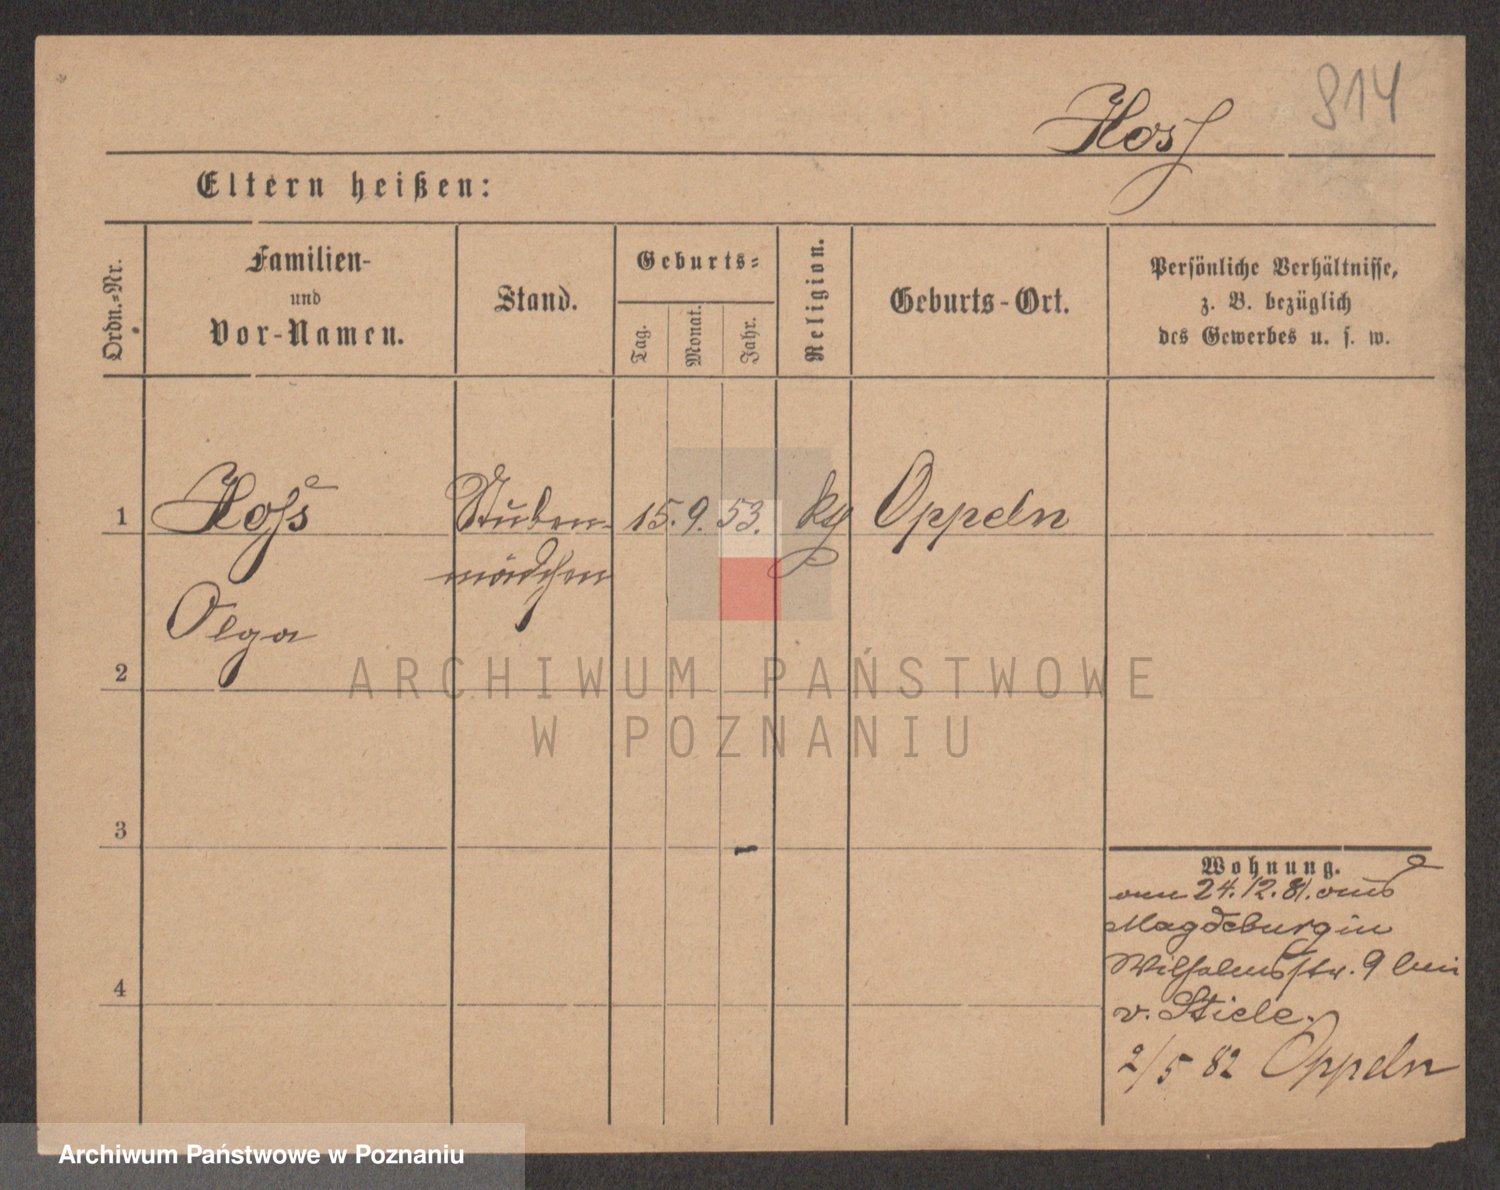 Hos
914
Eltern heißen:
Ordn.-Nr.
Familien-
und
Vor-Namen.
Stand.
Geburts-
Tag.
Monat.
Jahr.
Religion.
Geburts-Ort.
Persönliche Verhältnisse,
z. B. bezüglich
des Gewerbes u. s. w.
1
Hoss
Stuben-
15. 9. 53.
Oppeln
mädchen
Olga
2
ARCHIWUM PAŃSTWOWE
W POZNANIU
3
Wohnung.
am 24. 12. 81. aus
Magdeburg in
Wilhelmsstr. 9 bei
v. Stiele.
4
2/5 82 Oppeln
Archiwum Państwowe w Poznaniu